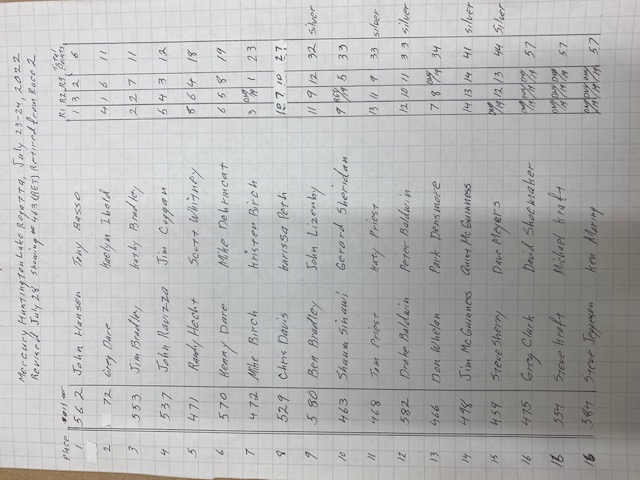 Mercury Huntington Lake Regatta, July 23-24, 2022
Revised July 28 showing # 463 (RET) Retired from Race 2
Place Sail # R1 R2 R3 Total Points
1 562 John Hansen Tony Basso 1 3 2 6
2 72 Greg Dare Haelyn Ibold 4 1 6 11
3 553 Jim Bradley Kathy Bradley 2 2 7 11
4 537 John Ravizza Jim Coggan 5 4 3 12
5 471 Randy Hecht Scott Whitney 8 6 4 18
6 570 Henny Dare Mike Dobrincat 6 5 8 19
7 472 Mike Birch Kristen Birch 3 19 1 23
8 529 Chris Davis Karissa Peth 10 7 10 27
9 580 Ben Bradley John Lizenby 11 9 12 32 silver
10 463 Shawn Sinawi Gerard Sheridan 9 RET/19 5 33
11 468 Tom Priest Katy Priest 13 11 9 33 silver
12 582 Drake Baldwin Peter Baldwin 12 10 11 33 silver
13 466 Don Whelan Park Densmore 7 8 19 34
14 498 Jim McGuinness Quint McGuinness 14 13 14 41 silver
15 459 Steve Sherry Dave Meyers 19 12 13 44 Silver
16 475 Gregg Clark David Shoemaker 19 19 19 57
16 554 Steve Kraft Michael Kraft 19 19 19 57
16 584 Steve Jeppesen Ken Maring 19 19 19 57